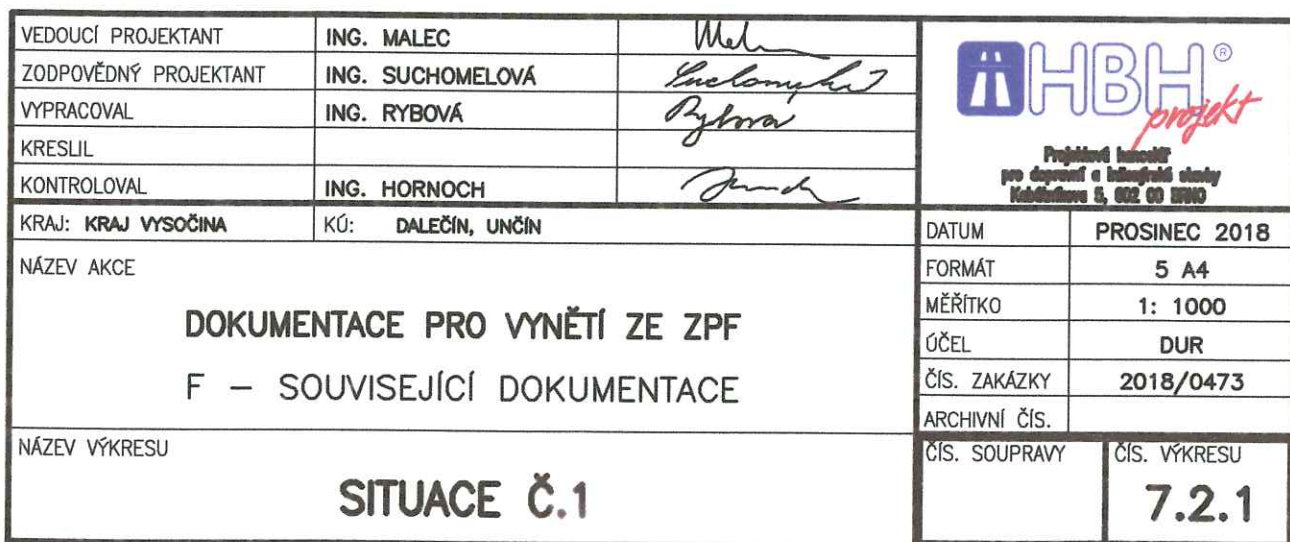 VEDOUCÍ PROJEKTANT ING. MALEC
ZODPOVĚDNÝ PROJEKTANT ING. SUCHOMELOVÁ
VYPRACOVAL ING. RYBOVÁ
KRESLIL
KONTROLOVAL ING. HORNOCH
HBH®
projekt
Projektová kancelář
pro dopravní a inženýrské stavby
Kabátníkova 5, 602 00 BRNO
KRAJ: KRAJ VYSOČINA KÚ: DALEČÍN, UNČÍN
NÁZEV AKCE
DOKUMENTACE PRO VYNĚTÍ ZE ZPF
F – SOUVISEJÍCÍ DOKUMENTACE
DATUM PROSINEC 2018
FORMÁT 5 A4
MĚŘÍTKO 1: 1000
ÚČEL DUR
ČÍS. ZAKÁZKY 2018/0473
ARCHIVNÍ ČÍS.
NÁZEV VÝKRESU
SITUACE Č.1
ČÍS. SOUPRAVY
ČÍS. VÝKRESU
7.2.1